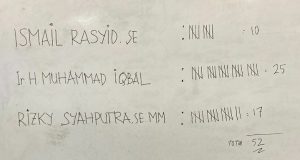 ISMAIL RASYID. SE : 10
Ir H MUHAMMAD IQBAL : 25
RIZKY SYAHPUTRA. SE. MM : 17
TOTAL 52